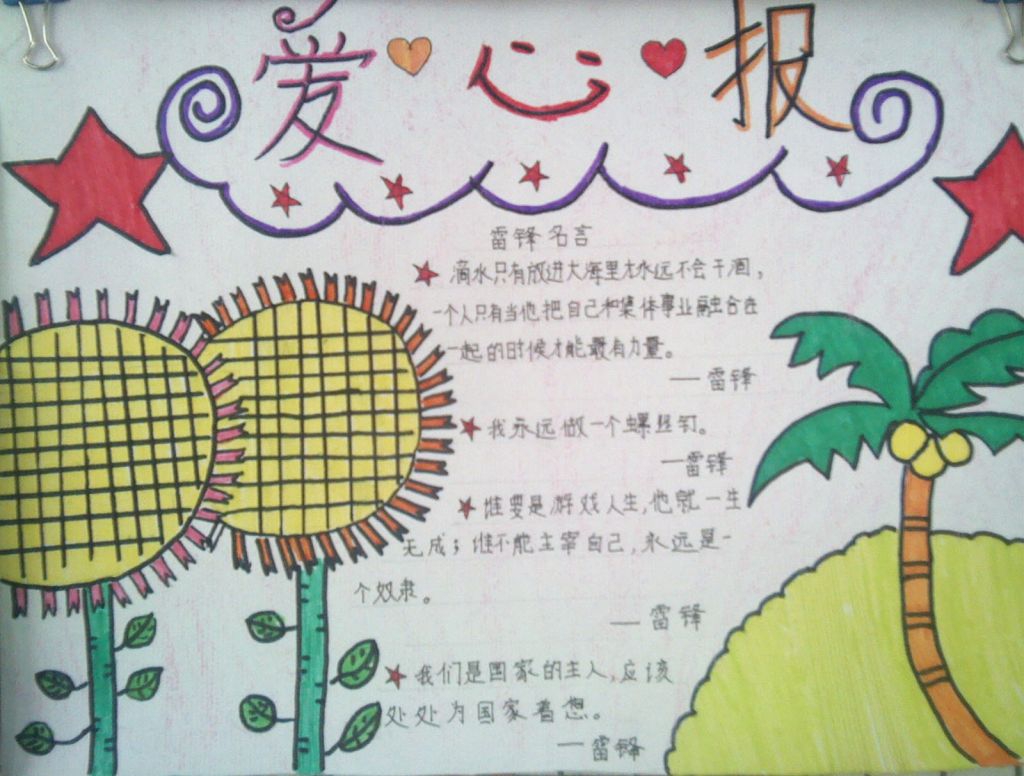 爱心报
雷锋名言
滴水只有放进大海里才永远不会干涸，
一个人只有当他把自己和集体事业融合在
一起的时候才能最有力量。
——雷锋
我永远做一个螺丝钉。
——雷锋
谁要是游戏人生，他就一生
无成；谁不能主宰自己，永远是一
个奴隶。
——雷锋
我们是国家的主人，应该
处处为国家着想。
——雷锋